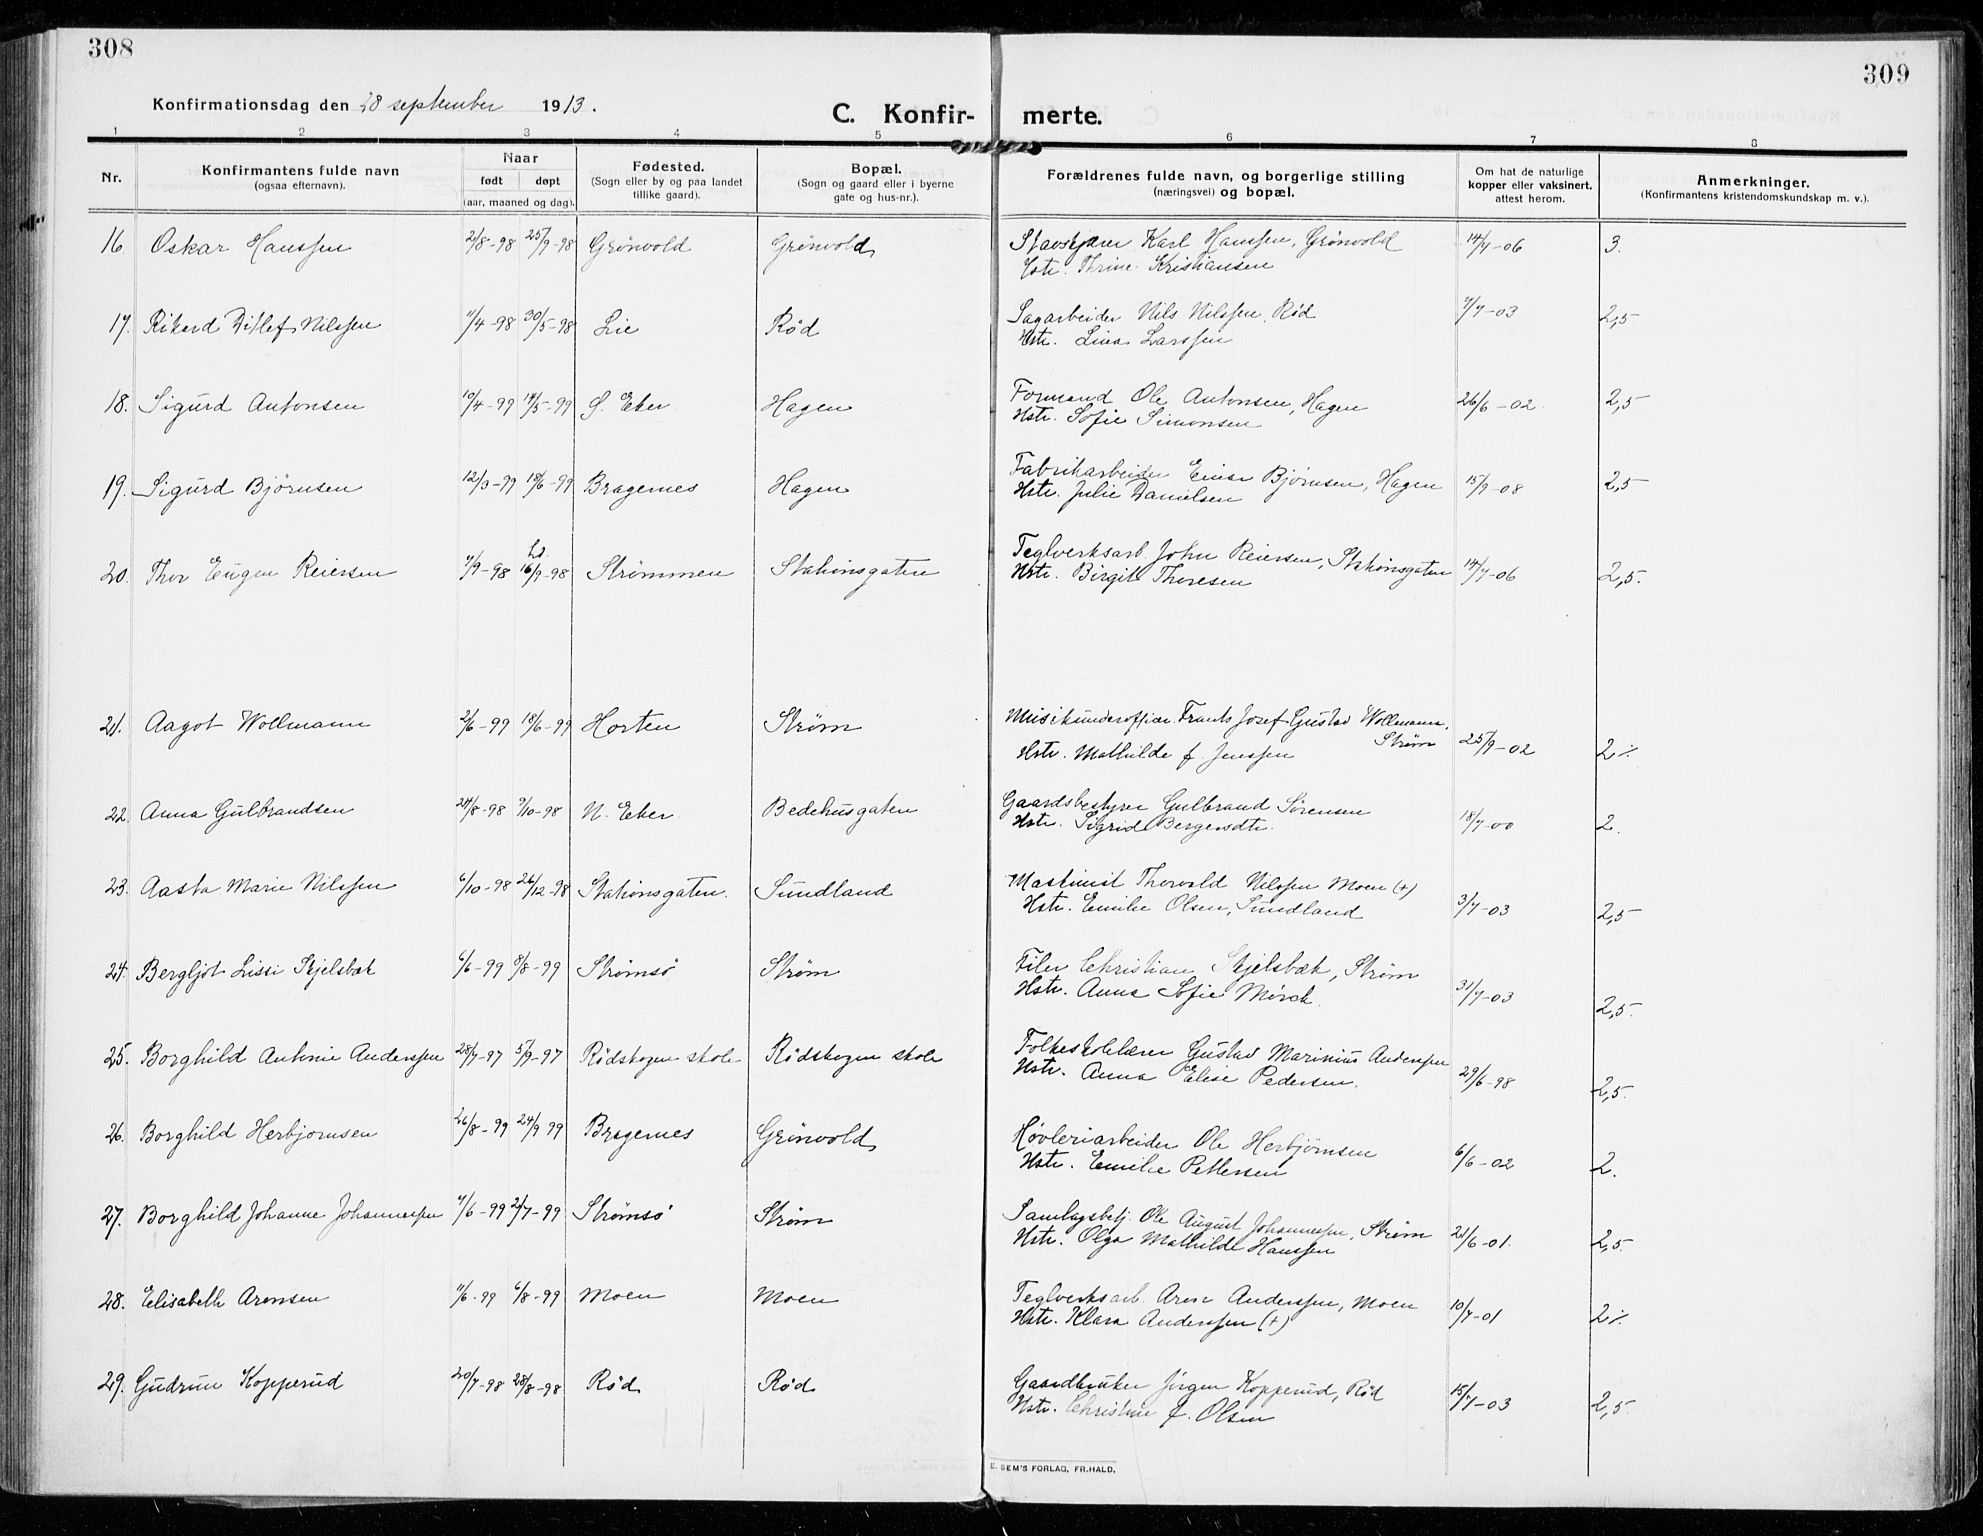 308
309
Konfirmationsdag den 28 september 1913.
C. Konfir- merte.
1 2 3 4 5 6 7 8
Nr.
Konfirmantens fulde navn
(ogsaa efternavn).
Naar
født døpt
(aar, maaned og dag).
Fødested.
(Sogn eller by og paa landet
tillike gaard).
Bopæl.
(Sogn og gaard eller i byerne
gate og hus-nr.).
Forældrenes fulde navn, og borgerlige stilling
(næringsvei) og bopæl.
Om hat de naturlige
kopper eller vaksinert,
attest herom.
Anmerkninger.
(Konfirmantens kristendomskundskap m. v.).
16 Oskar Hanssen 2/8-98 25/9-98 Grönvold Grönvold Stavskjærer Karl Hanssen, Grönvold 14/7-06 3.
Hstr. Thrine Kristiansen
17. Rikard Ditlef Nilssen 11/4-98 30/5-98 Lie Rød Sagarbeider Nils Nilssen, Rød 7/7-03 2,5
Hstr. Lina Larssen
18. Sigurd Antonsen 10/4-99 14/5-99 S. Eker Hagen Formand Ole Antonsen, Hagen 26/6-02. 2,5
Hstr. Sofie Simonsen
19. Sigurd Björnsen 12/3-99 18/6-99 Bragernes Hagen Fabrikarbeider Einar Bjørnsen, Hagen 15/9-08 2,5
Hstr. Julie Danielsen
20. Thor Eugen Reiersen 7/9-98 16/9-98 Strömmen Stationsgaten Teglverksarb. John Reiersen, Stationsgaten 14/7-06 2,5.
Hstr. Birgit Thoresen
21. Aagot Wollmann 2/6-99 18/6-99 Horten Strøm Musikunderofficer Frants Josef Gustav Wollmann,
Strøm 25/9-02 2%
Hstr. Mathilde f. Jenssen
22. Anna Gulbrandsen 24/8-98 9/10-98 N. Eker. Bedehusgaten Gaardsbestyrer Gulbrand Sørensen 18/7-00 2.
Hstr. Sigrid Bergersdtr.
23. Aasta Marie Nilssen 6/10-98 26/12-98 Stationsgaten. Sundland Maskinist Thorvald Nilssen Moen (+) 3/7-03 2,5
Hstr. Emilie Olsen, Sundland
24. Bergljot Lissi Skjelsbæk 6/6-99 8/8-99 Strømsö Strøm Filer Christian Skjelsbæk, Strøm 31/7-03 2,5.
Hstr. Anna Sofie Mørch.
25. Borghild Antonie Anderssen 28/7-97 5/9-97 Rödskogen skole Rödskogen skole Folkeskolelærer Gustav Marinius Anderssen 29/6-98 2,5.
Hstr. Anna Elise Pedersen.
26. Borghild Herbjornsen 26/8-99 24/9 99 Bragernes Grönvold Høvleriarbeider Ole Herbjørnsen 6/6-02 2.
Hstr. Emilie Pettersen
27. Borghild Johanne Johannessen 7/6-99 2/7-99 Strömsö Strøm Samlagsbetj. Ole August Johannessen, Strøm 21/6-01. 2,5.
Hstr. Olga Mathilde Hanssen
28. Elisabeth Arensen 11/6-99 6/8-99 Moen Moen Teglverksarb. Aren Anderssen, Moen 10/7-01 2%
Hstr. Klara Anderssen (+)
29. Gudrun Kopperud 20/7-98 28/8-98 Rød Rød Gaardbruker Jörgen Kopperud, Rød 15/7-03 2,5.
Hstr. Christine f. Olsen
SEM'S FORLAG, FR.HALD.